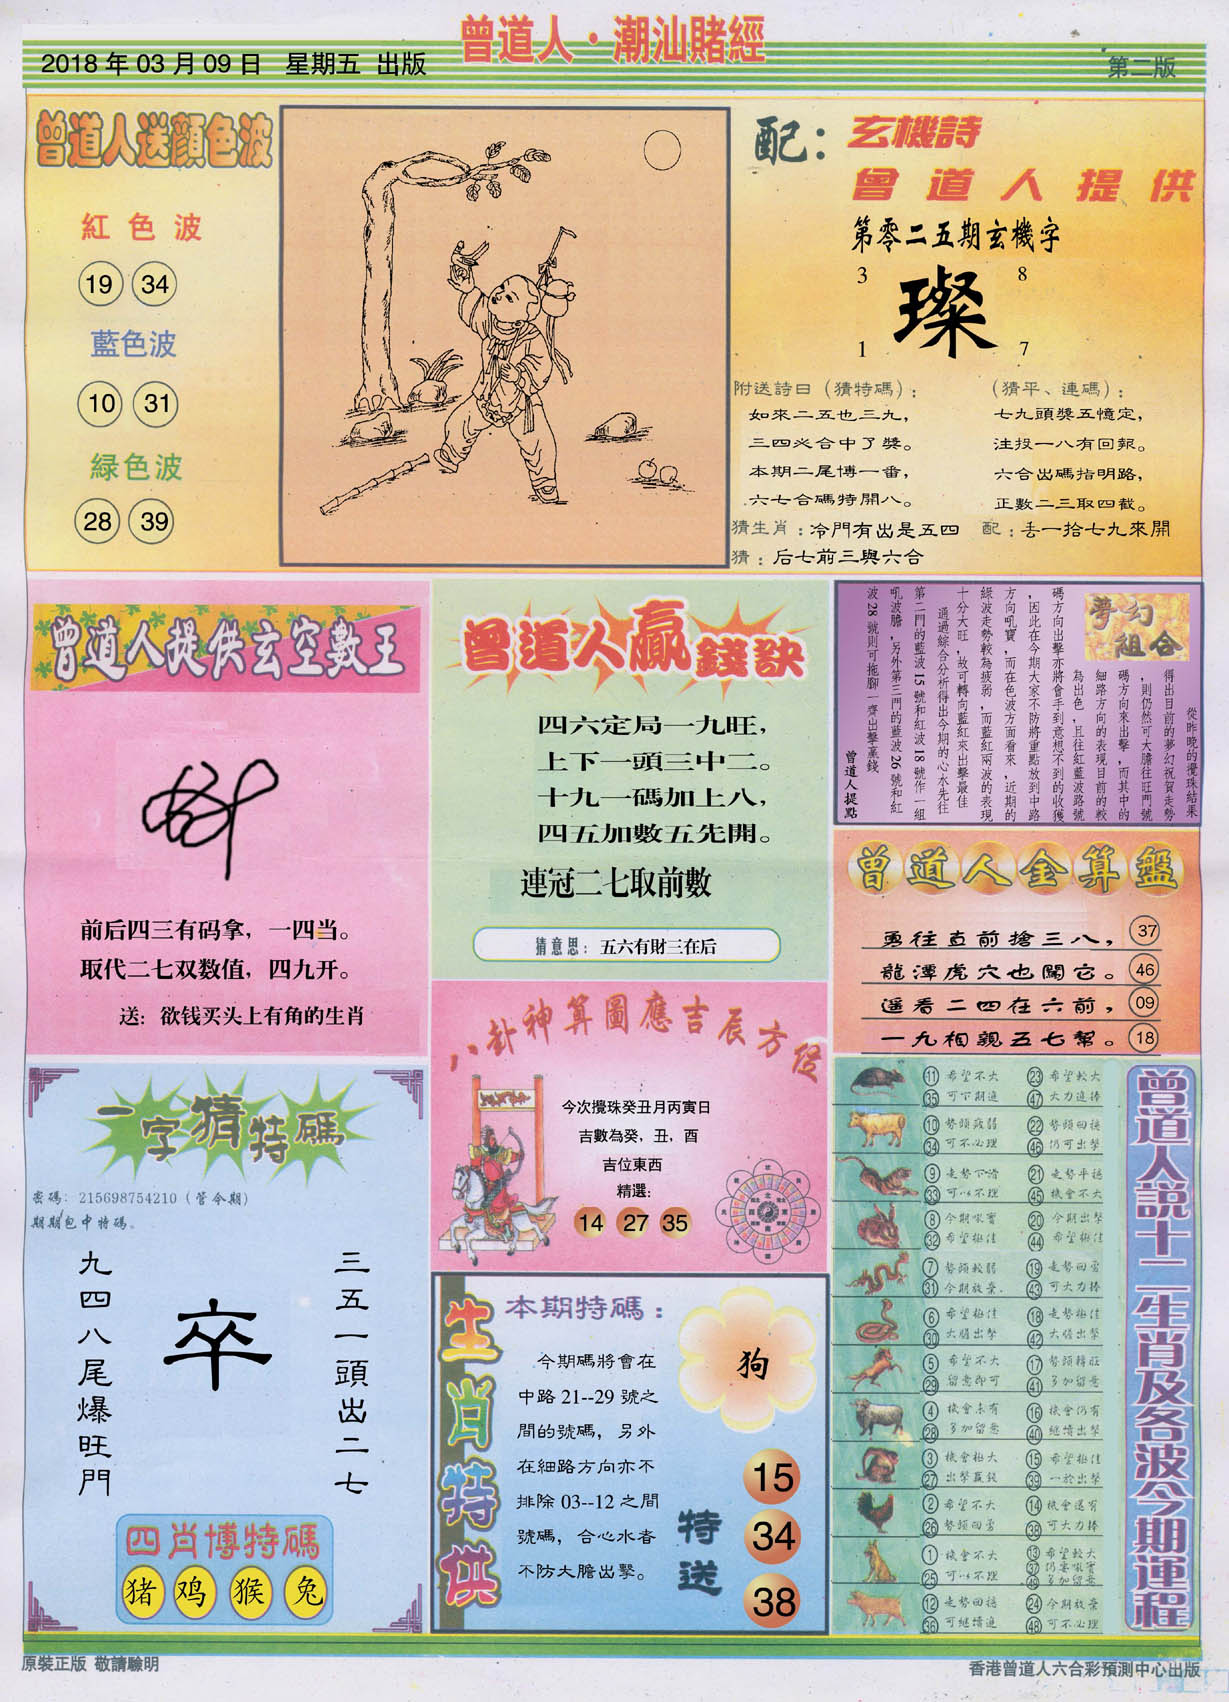 曾道人·潮汕賭經
2018年03月09日 星期五 出版
第二版
曾道人送顏色波
紅色波
19 34
藍色波
10 31
緑色波
28 39
配：玄機詩
曾道人提供
第零二五期玄機字
3 8
璨
1 7
附送詩曰（猜特碼）：
如來二五也三九，
三四必合中了獎。
本期二尾博一番，
六七合碼特開八。
（猜平、連碼）：
七九頭獎五憶定，
注投一八有回報。
六合出碼指明路，
正數二三取四截。
猜生肖：冷門有出是五四
配：丢一拾七九來開
猜：后七前三與六合
曾道人提供玄空數王
前后四三有码拿，一四当。
取代二七双数值，四九开。
送：欲钱买头上有角的生肖
曾道人贏錢訣
四六定局一九旺，
上下一頭三中二。
十九一碼加上八，
四五加數五先開。
連冠二七取前數
猜意思：五六有財三在后
夢幻
組合
從昨晚的攪珠結果
得出目前的夢幻祝賀走勢
，則仍然可大膽往旺門號
碼方向來出擊，而其中的
細路方向的表現目前的較
為出色，且往紅藍波路號
碼方向出擊亦將會手到意想不到的收獲
，因此在今期大家不防將重點放到中路
方向吼寶，而在色波方面看來，近期的
綠波走勢較為疲弱，而藍紅兩波的表現
十分大旺，故可轉向藍紅來出擊最佳
通過綜合分析得出今期的心水先往
第二門的藍波15號和紅波18號作一組
吼波膽，另外第三門的藍波26號和紅
波28號則可拖腳一齊出擊贏錢
曾道人提點
曾道人金算盤
勇往直前搶三八， 37
龍潭虎穴也闖它。 46
遥看二四在六前， 09
一九相親五七幫。 18
八卦神算圖應吉辰方位
今次攪珠癸丑月丙寅日
吉數為癸，丑，酉
吉位東西
精選:
14 27 35
一字猜特碼
密碼：215698754210（管今期）
期期包中特碼。
三五一頭出二七
卒
九四八尾爆旺門
四肖博特碼
猪 鸡 猴 兔
生肖特供
本期特碼：
狗
今期碼將會在
中路21--29號之
間的號碼，另外
在細路方向亦不
排除03--12之間
號碼，合心水者
不防大膽出擊。
特送
15
34
38
曾道人説十二生肖及各波今期運程
11 希望不大 23 希望較大
35 可下期進 47 大力進捧
10 勢頭疲弱 22 勢頭回穩
34 可不必理 46 仍可出擊
9 走勢下滑 21 走勢平穩
33 可以不理 45 機會不大
8 今期吼寶 20 今期出擊
32 希望極佳 44 希望極佳
7 勢頭較弱 19 走勢回勇
31 今期放棄 43 可大力捧
6 希望極佳 18 走勢極佳
30 大膽出擊 42 大膽出擊
5 希望不大 17 勢頭轉旺
29 留意即可 41 多加留意
4 機會未有 16 機會仍有
28 多加留意 40 繼續出擊
3 機會極大 15 希望極佳
27 出擊贏錢 39 一於出擊
2 希望不大 14 機會還有
26 勢頭回勇 38 可大力捧
1 機會不大 13 希望較大
25 可以不理 37 仍要吼寶
49 多加留意
12 走勢回穩 24 今期放棄
36 可繼續進 48 可不必理
原裝正版 敬請驗明
香港曾道人六合彩預測中心出版